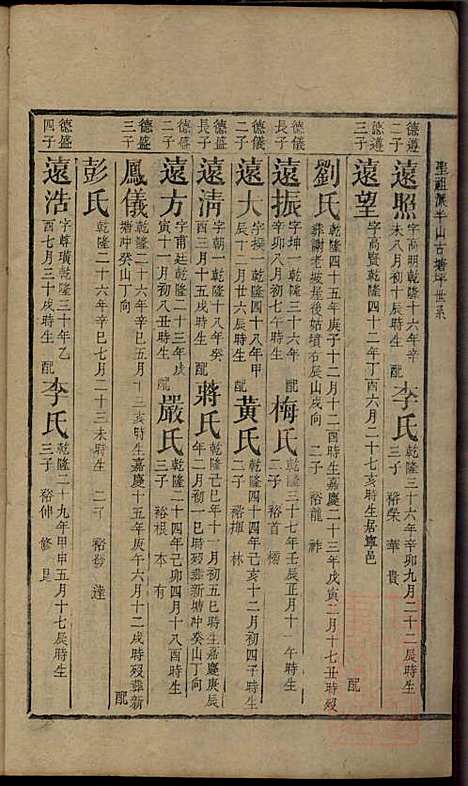 聖祖派半山古塘坪世系
德遵二子
遠照 字高明乾隆十六年辛未八月初十辰時生 配
李氏 乾隆三十六年辛卯九月二十二辰時生 三子 裕榮 華 貴
德遵三子
遠望 字高賢乾隆四十二年丁酉六月二十七亥時生居寧邑 配
劉氏 乾隆四十五年庚子十二月十二酉時生嘉慶二十三年戊寅二月十七丑時歿葬謝老坡屋後姑墳右辰山戌向 二子 裕龍 祚
德儀長子
遠振 字坤一乾隆三十六年辛卯八月初七午時生 配
梅氏 乾隆三十七年壬辰正月十一午時生 二子 裕首
德儀二子
遠大 字 乾隆四十八年甲辰十二月廿六辰時生 配
黃氏 乾隆四十四年己亥十二月初四子時生 二子 裕揮 林
德盛長子
遠清 字朝一乾隆十八年癸酉三月十五戌時生 配
蔣氏 乾隆己巳年十一月初五巳時生嘉慶庚辰年二月初一巳時歿葬新塘冲癸山丁向
德盛二子
遠方 字甫廷乾隆二十三年戊寅十一月初六戌時生 配
嚴氏 乾隆二十四年己卯四月十八酉時生 三子 裕根 本 有
德盛三子
鳳儀 乾隆二十六年辛巳五月十三亥時生嘉慶十五年庚午六月十二戌時歿葬新塘冲癸山丁向 配
彭氏 乾隆二十六年辛巳七月二十三未時生 二子 裕發 達
德盛四子
遠浩 字尊璜乾隆三十年乙酉七月三十戌時生 配
李氏 乾隆二十九年甲申五月十七辰時生 三子 裕伸 修 昆